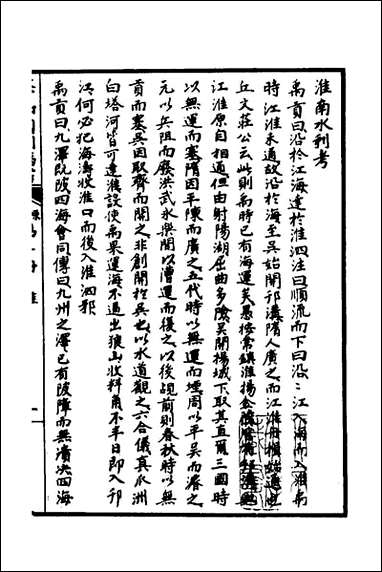 淮南水利考
禹貢曰沿於江海達於淮泗注曰順流而下曰沿江入海而入淮禹
時江淮未通故沿於海至吳始開邗溝隋人廣之而江淮舟楫始通也
丘文莊公云此則禹時已有海運矣愚按常鎮淮揚
江淮原自相通但由射陽湖屈曲多險吳開揚城下取其直爾三國時
以無運而塞隋因平陳而廣之五代時以無運而堙周以平吳而濬之
元以兵阻而廢洪武永樂間以漕運而復之以後觀前則春秋時以無
貢而塞吳因取齊而開之非創開於吳也以水道觀之六合儀真瓜洲
白塔河皆可達淮設使禹果運海不過出狼山收料角不半日即入邗
江何必犯海濤收淮口而後入淮泗邪
禹貢曰九澤既陂四海會同傳曰九州之澤已有陂障而無潰決四海